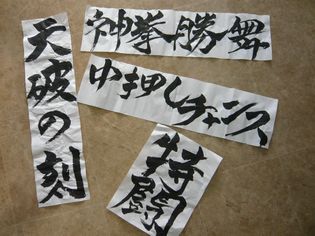 天破の刻
神拳勝舞
中押しチャンス
特闘